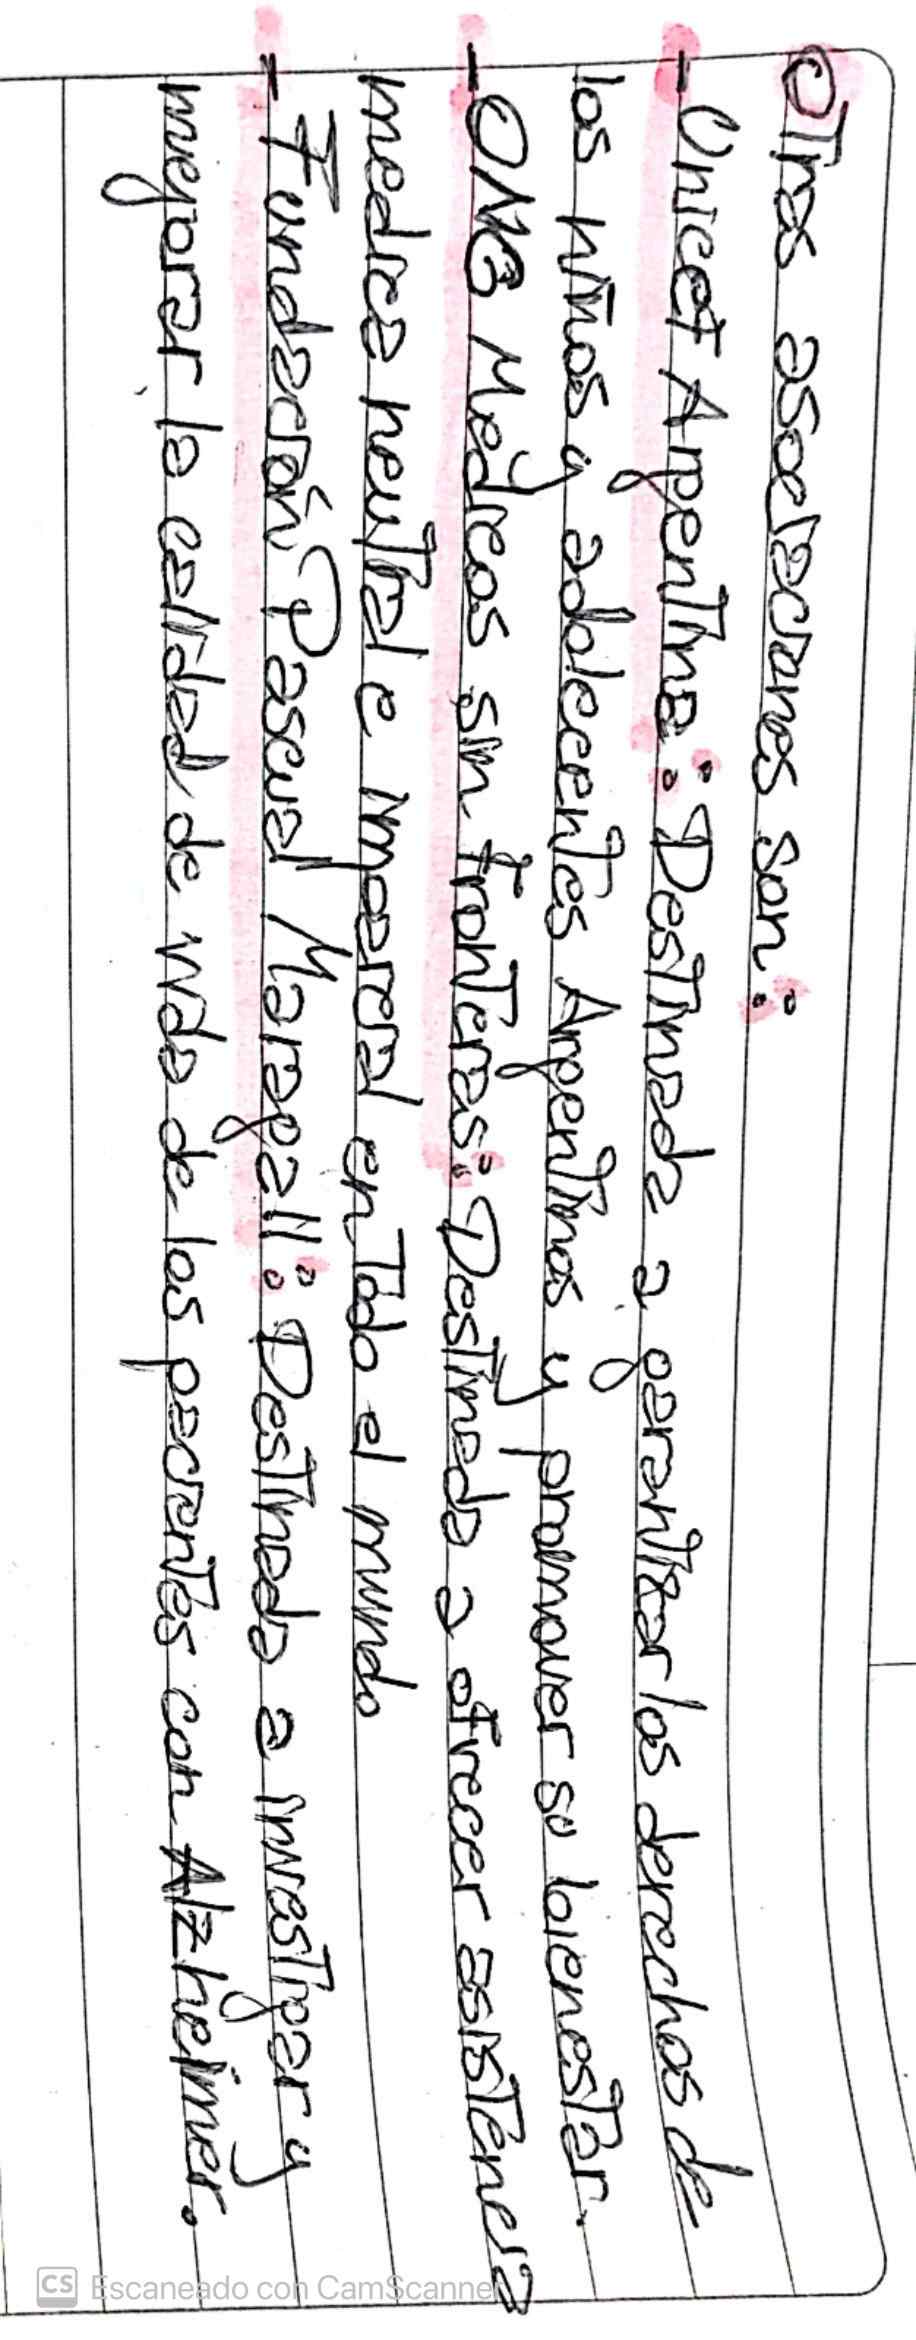 Otras asociaciones son:
- Unicef Argentina: Destinada a garantizar los derechos de
los niños y adolecentes Argentinos y promover su bienestar.
- ONG Médicos sin fronteras: Destinada a ofrecer asistencia
medica neutral e imparcial en todo el mundo
- Fundación Pascual Maragall: Destinada a investigar y
mejorar la calidad de vida de los pacientes con Alzheimer.
CS Escaneado con CamScanner